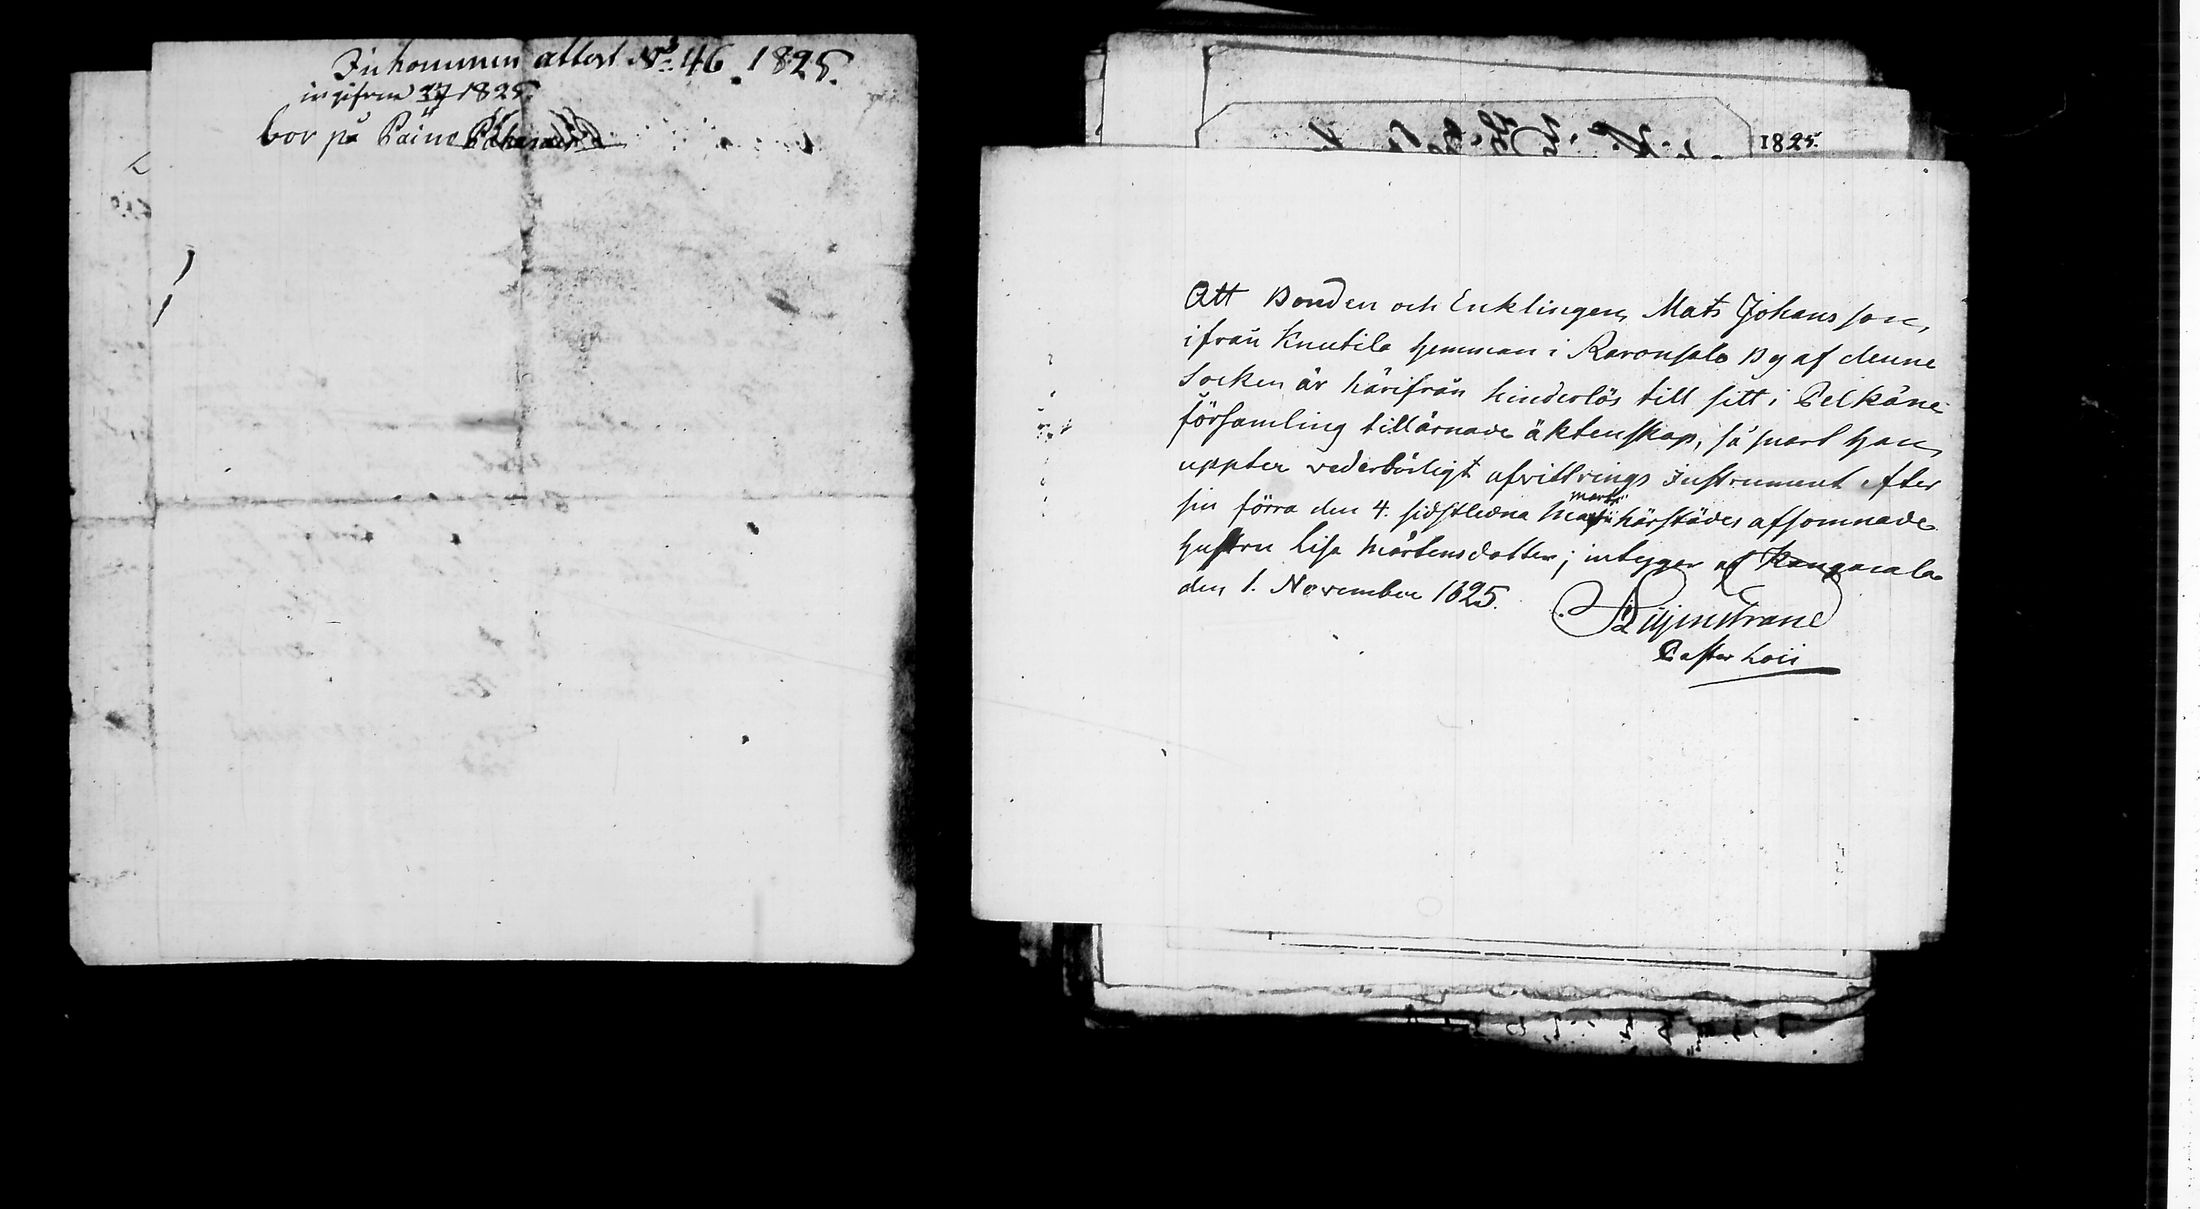 Inkommen attest No 46. 1825.
ingifven 1825.
bor på Paino
1825.
Att Bonden och Enklingen Mats Johansson,
ifrån Knutila hemman i Raronsalo By af denne
Socken är härifrån hinderlös till sitt i Pelkäne
församling tillärnade äktenskap, så snart han
uppter vederbörligt afvittrings Instrument efter
sin förra den 4. sidstledna Martii härstädes afsomnade
hustru Lisa Mårtensdotter; intygger af Kangasala
den 1. November 1825.
Pastor loci